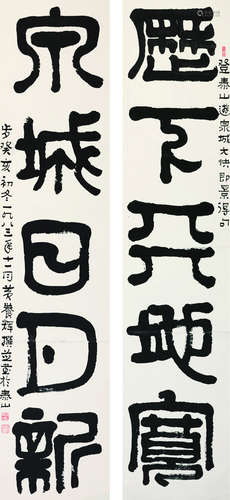 登泰山遊泉城大快即景得句
歷下天地寬
泉城日月新
歲癸亥初冬一九八三年十二月黄養輝撰並書於泰山